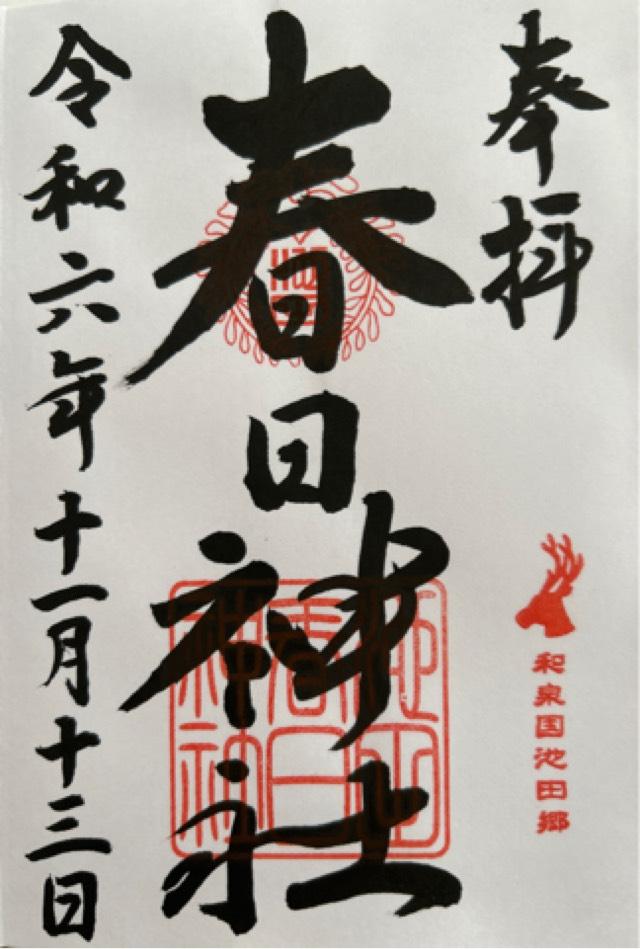 奉拝
和泉国池田郷
春日神社
令和六年十一月十三日